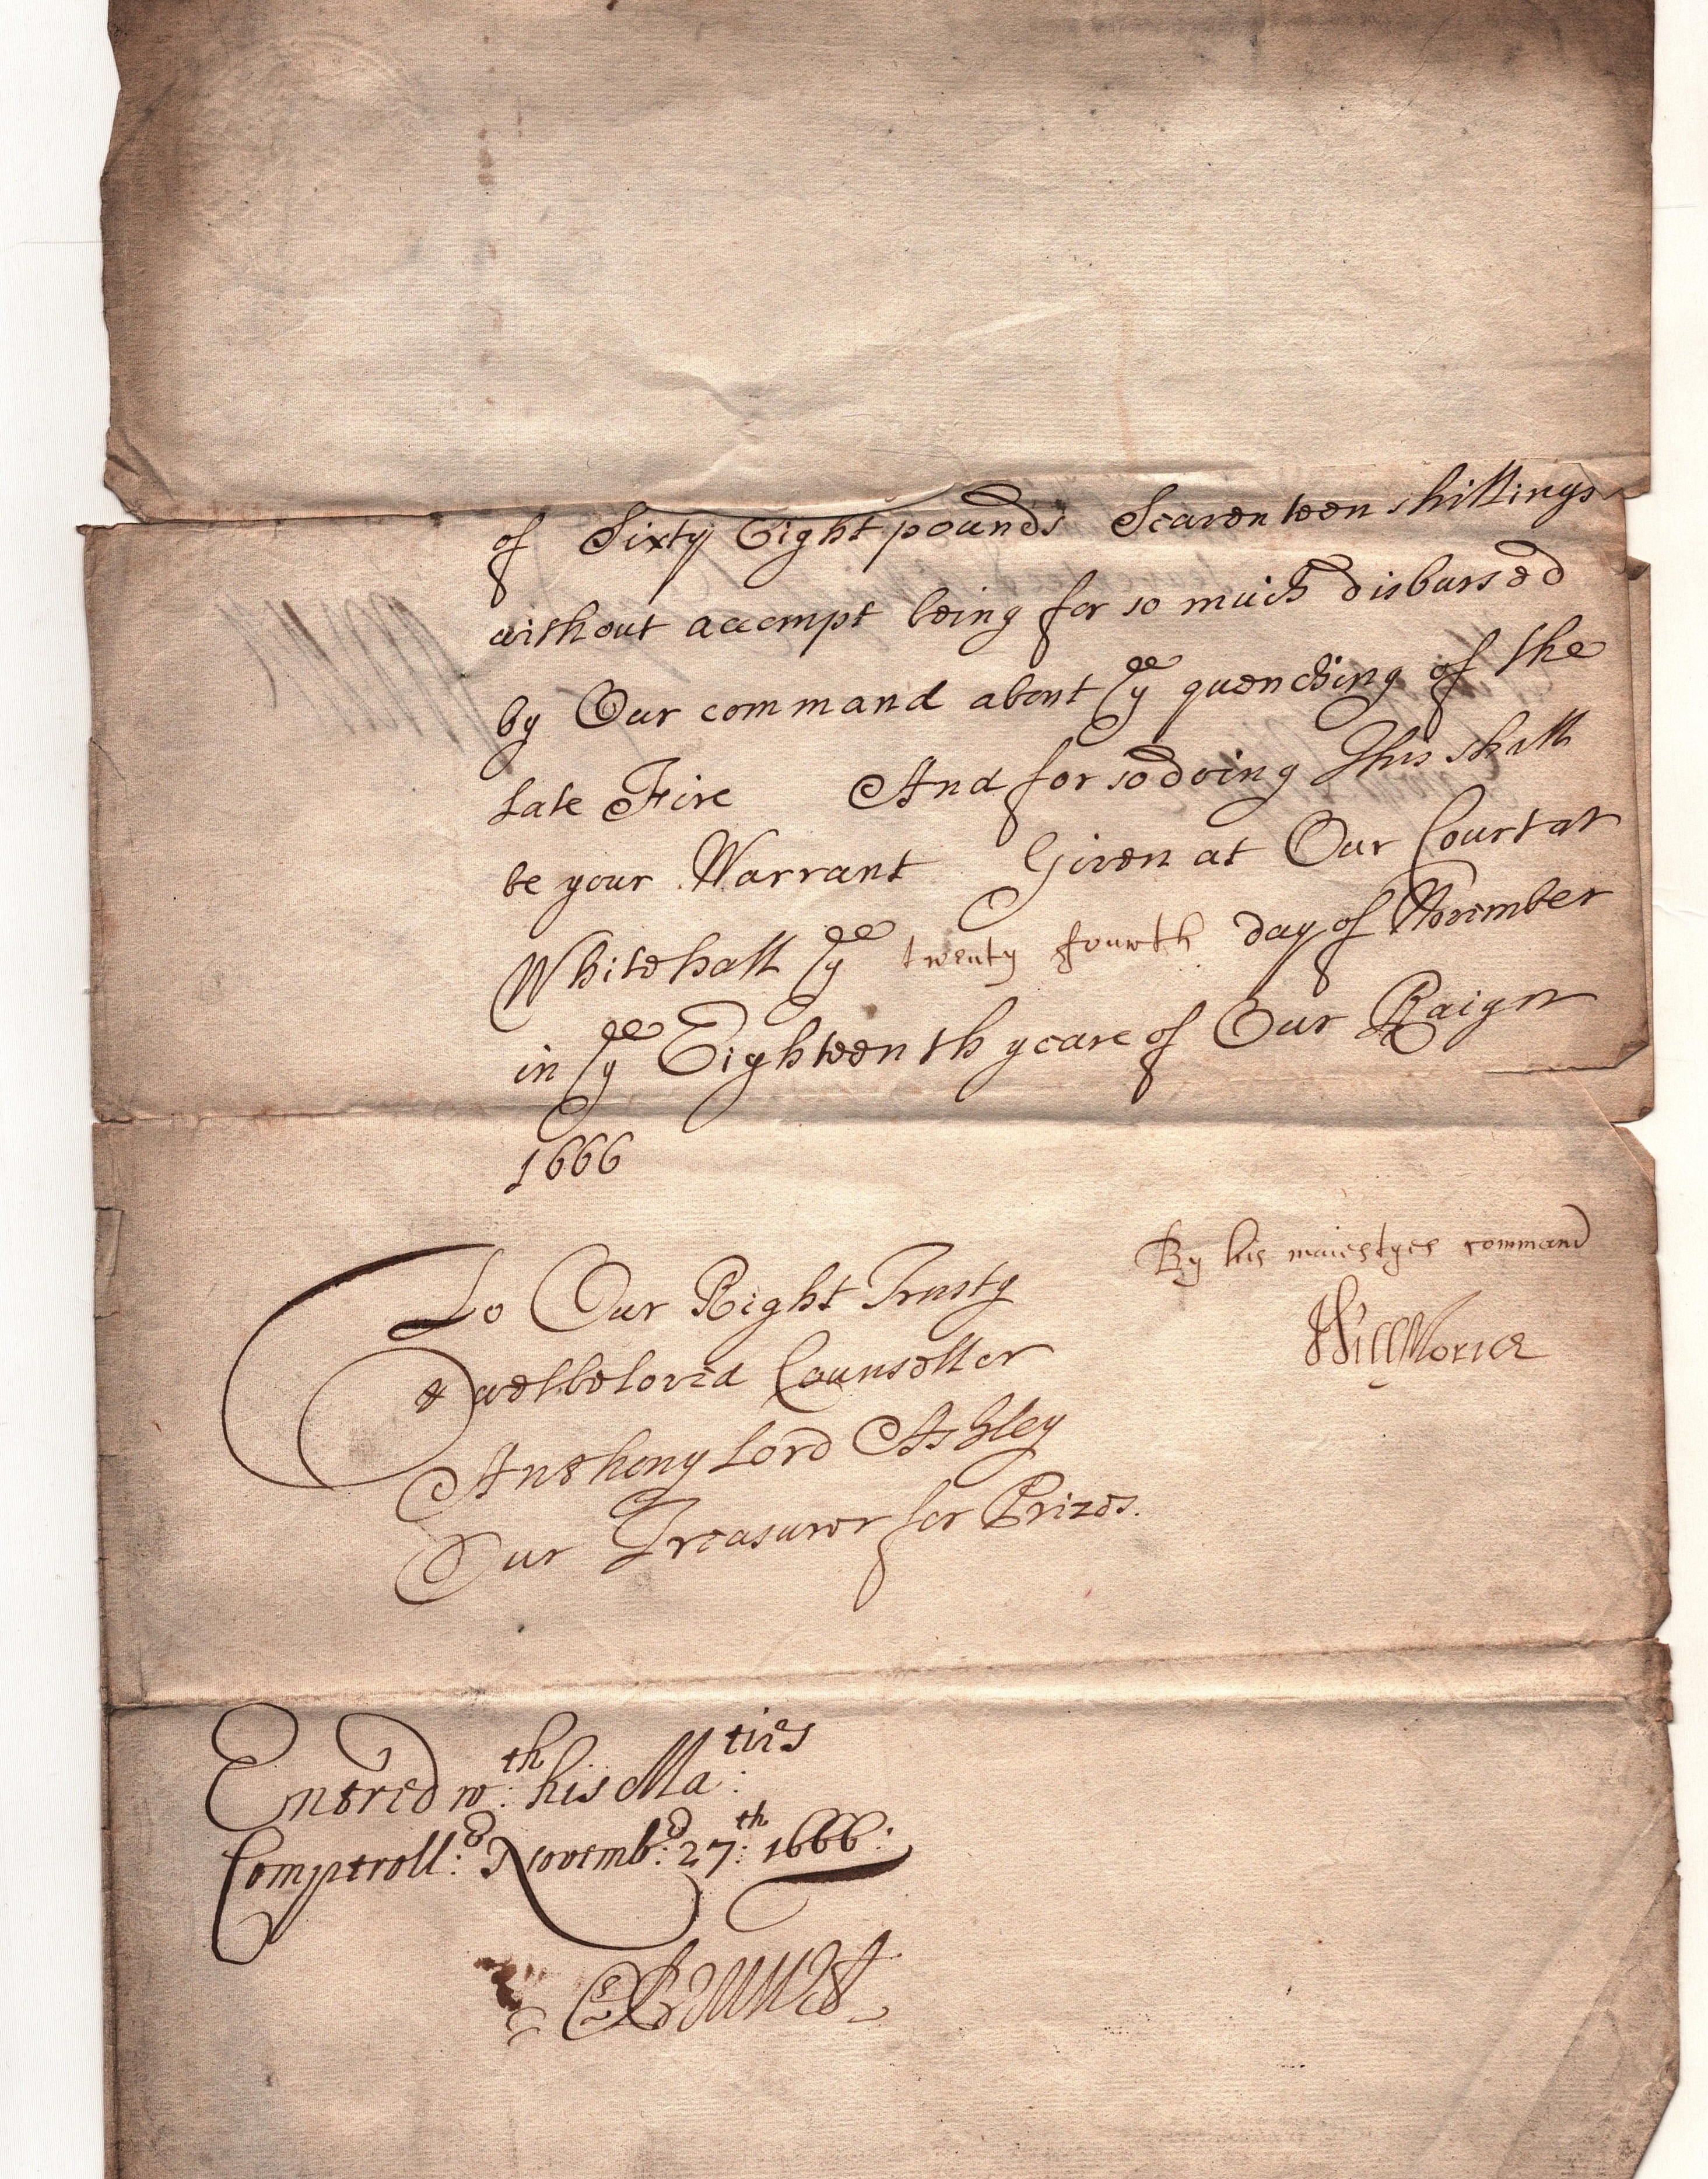 of Sixty Eight pounds Seaventeen shillings
without accompt being for so much disbursed
by Our command about ye quenching of the
late Fire And for so doing This shall
be your Warrant Given at Our Court at
Whitehall ye twenty fourth day of November
in ye Eighteenth yeare of Our Raign
1666
By his maiestyes command
Will Morice
To Our Right Trusty
& welbeloved Counsellor
Anthony Lord Ashley
Our Treasurer for Prizes.
Entred wth: his Maties:
Comptroll: Novemb: 27th: 1666: